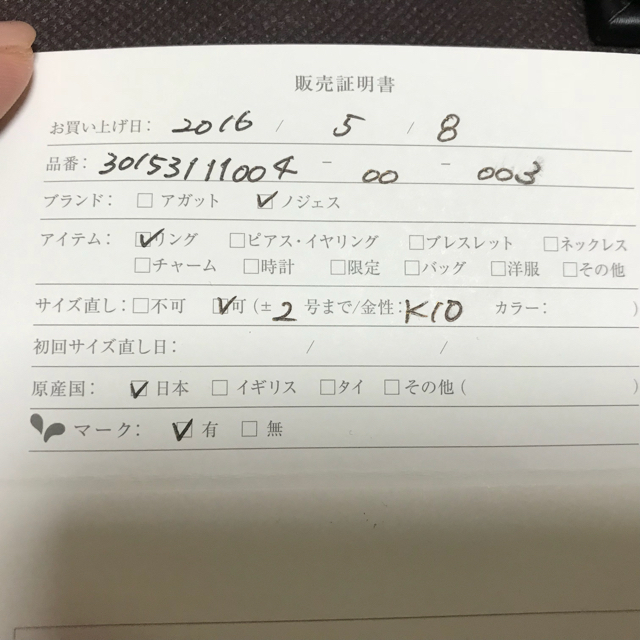 販売証明書
お買い上げ日: 2016 / 5 / 8
品番: 30153111004 - 00 - 003
ブランド: □ アガット ☑ ノジェス
アイテム: ☑リング □ピアス・イヤリング □ブレスレット □ネックレス
□チャーム □時計 □限定 □バッグ □洋服 □その他
サイズ直し: □不可 ☑可(± 2 号まで/金性: K10 カラー: )
初回サイズ直し日: / /
原産国: ☑ 日本 □ イギリス □タイ □ その他( )
マーク: ☑ 有 □ 無